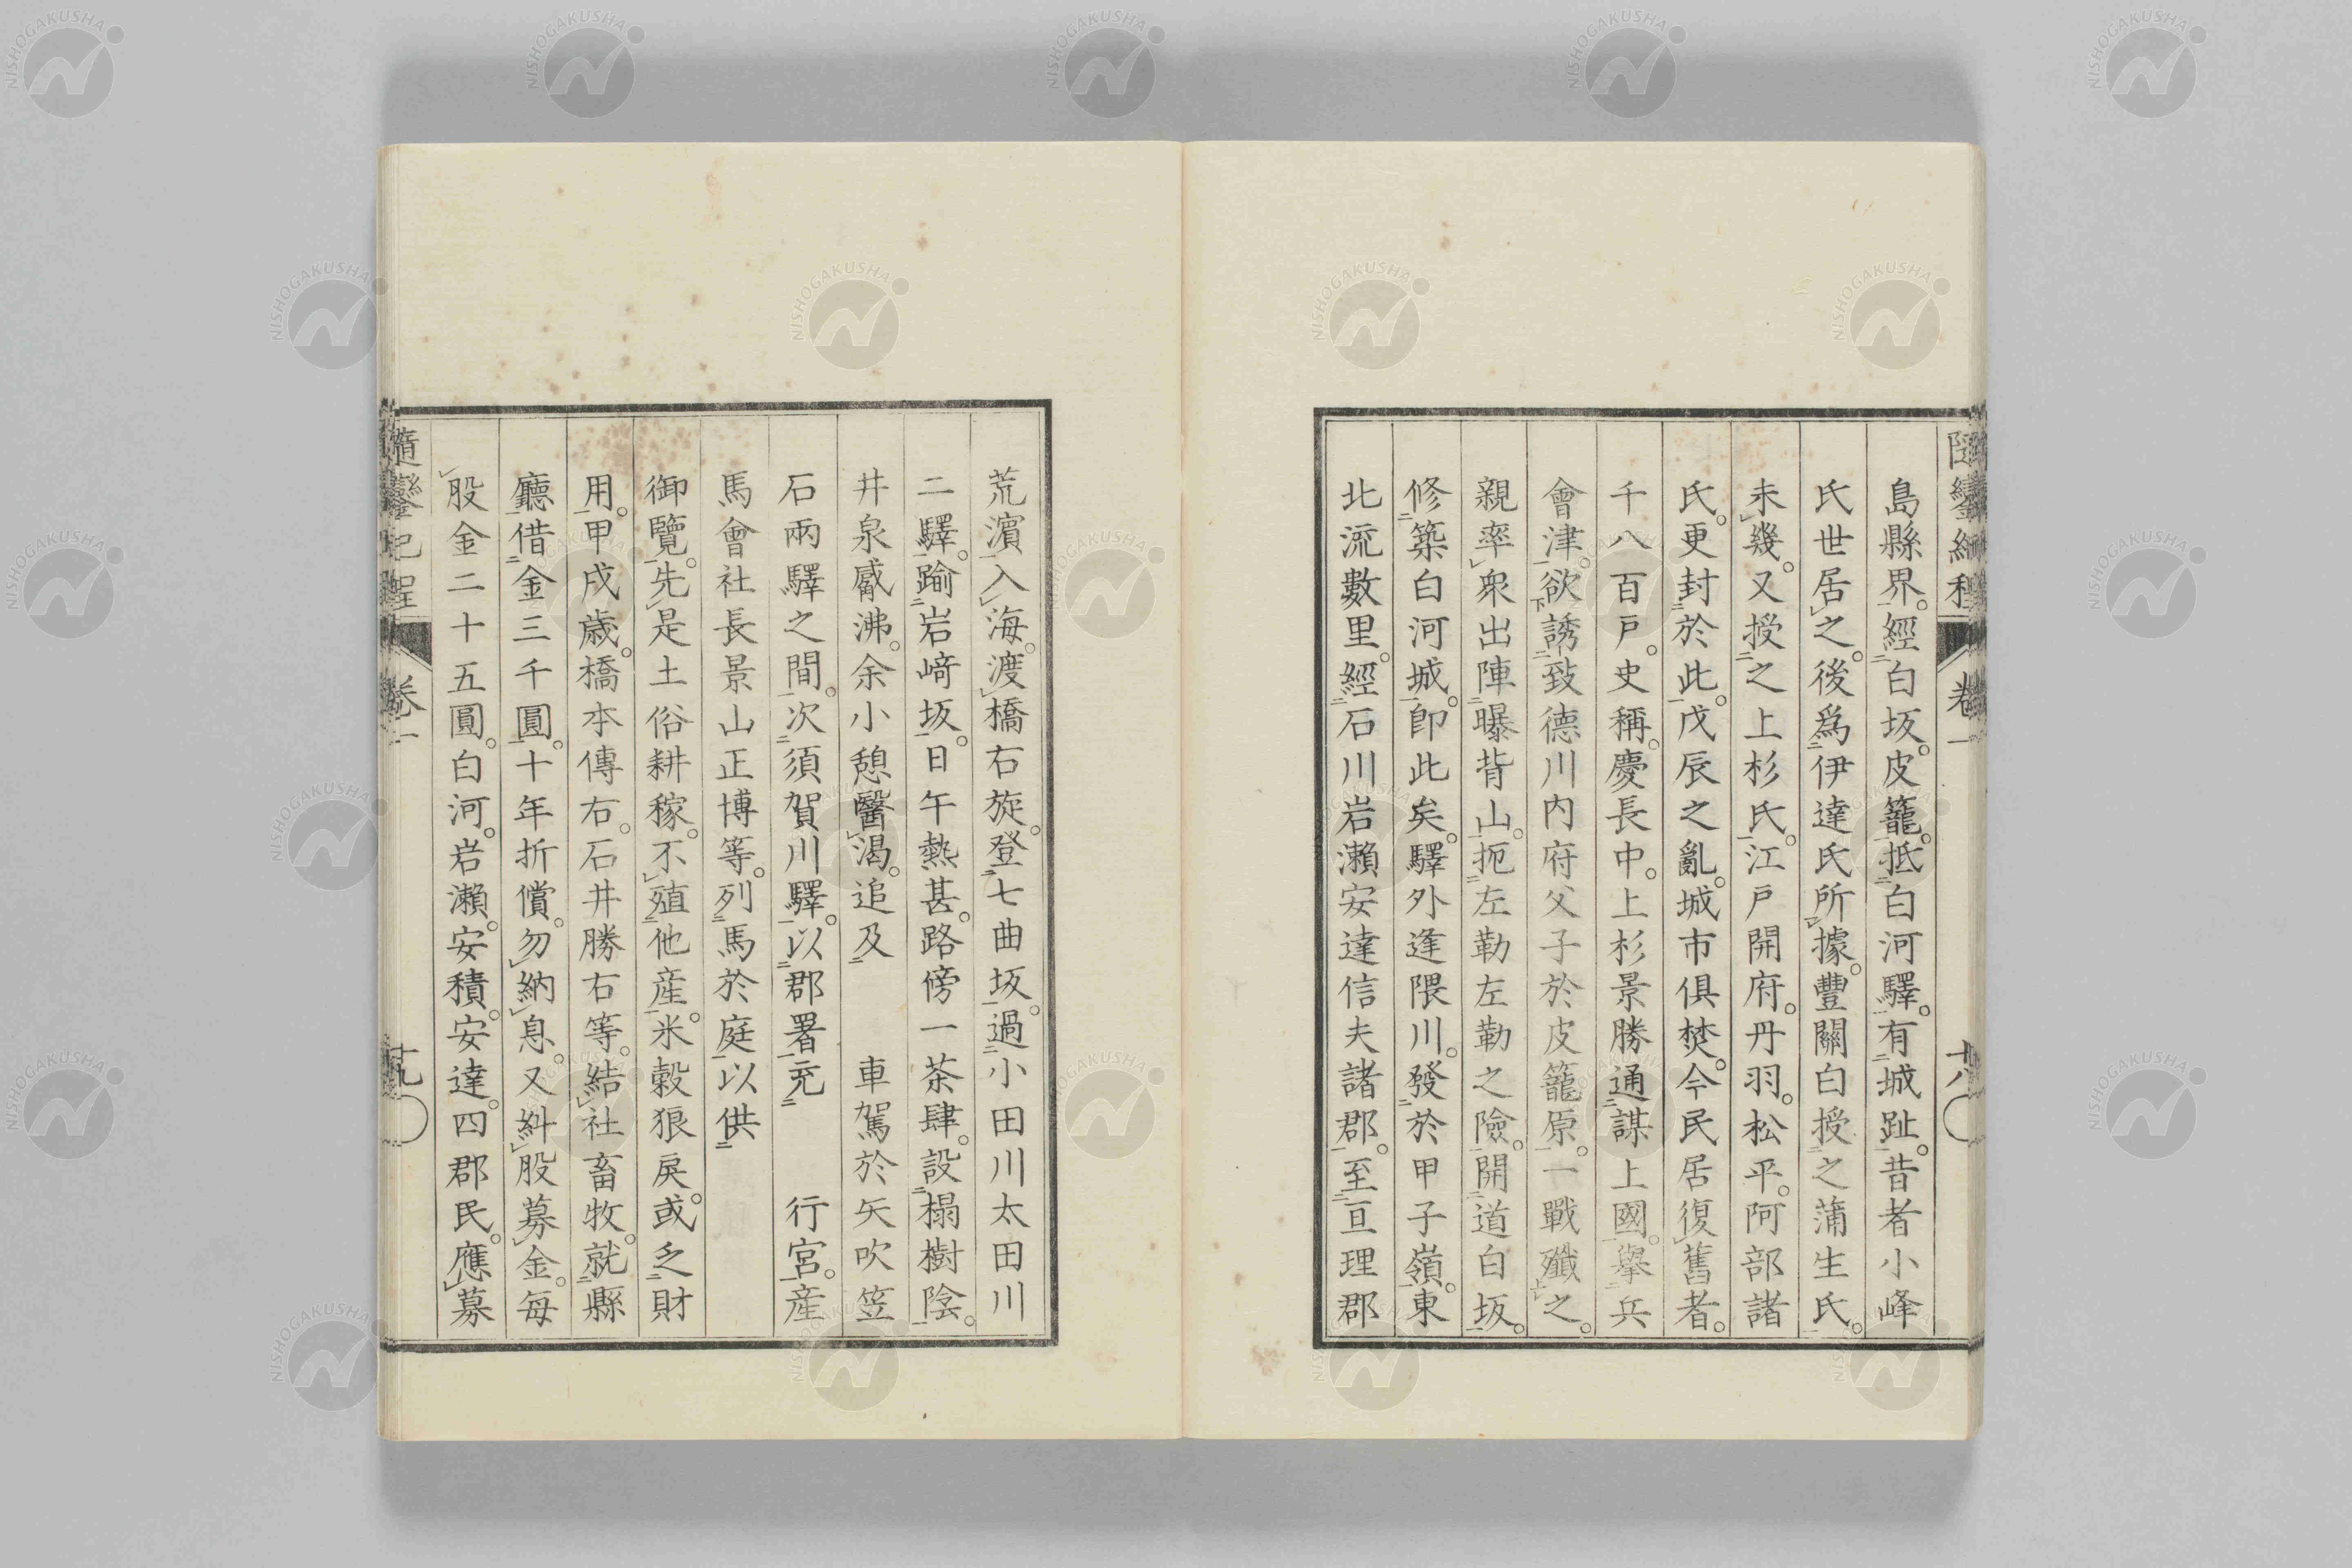 島縣界。經白坂。皮籠。抵白河驛。有城趾。昔者小峰
氏世居之。後爲伊達氏所據。豐關白授之蒲生氏。
未幾。又授之上杉氏。江戸開府。丹羽。松平。阿部諸
氏。更封於此。戊辰之亂。城市俱焚。今民居復舊者。
千八百戸。史稱。慶長中。上杉景勝通謀上國。舉兵
會津。欲誘致德川内府父子於皮籠原。一戰殲之。
親率衆出陣曝背山。扼左勒左勒之險。開道白坂。
修築白河城。卽此矣。驛外逢隈川。發於甲子嶺。東
北流數里。經石川岩瀨安達信夫諸郡。至亘理郡
荒濱入海。渡橋右旋。登七曲坂。過小田川太田川
二驛。踰岩﨑坂。日午熱甚。路傍一茶肆。設榻樹陰。
井泉觱沸。余小憩醫渴。追及 車駕於矢吹笠
石兩驛之間。次須賀川驛。以郡署充 行宮。産
馬會社長景山正博等。列馬於庭以供
御覽。先是土俗耕稼。不殖他産。米穀狼戾。或乏財
用。甲戌歳。橋本傳右。石井勝右等。結社畜牧。就縣
廳借金三千圓。十年折償。勿納息。又糾股募金。每
股金二十五圓。白河。岩瀨。安積。安達。四郡民。應募
隨鑾紀程 卷一 十八
隨鑾紀程 卷一 十九
NISHOGAKUSHA